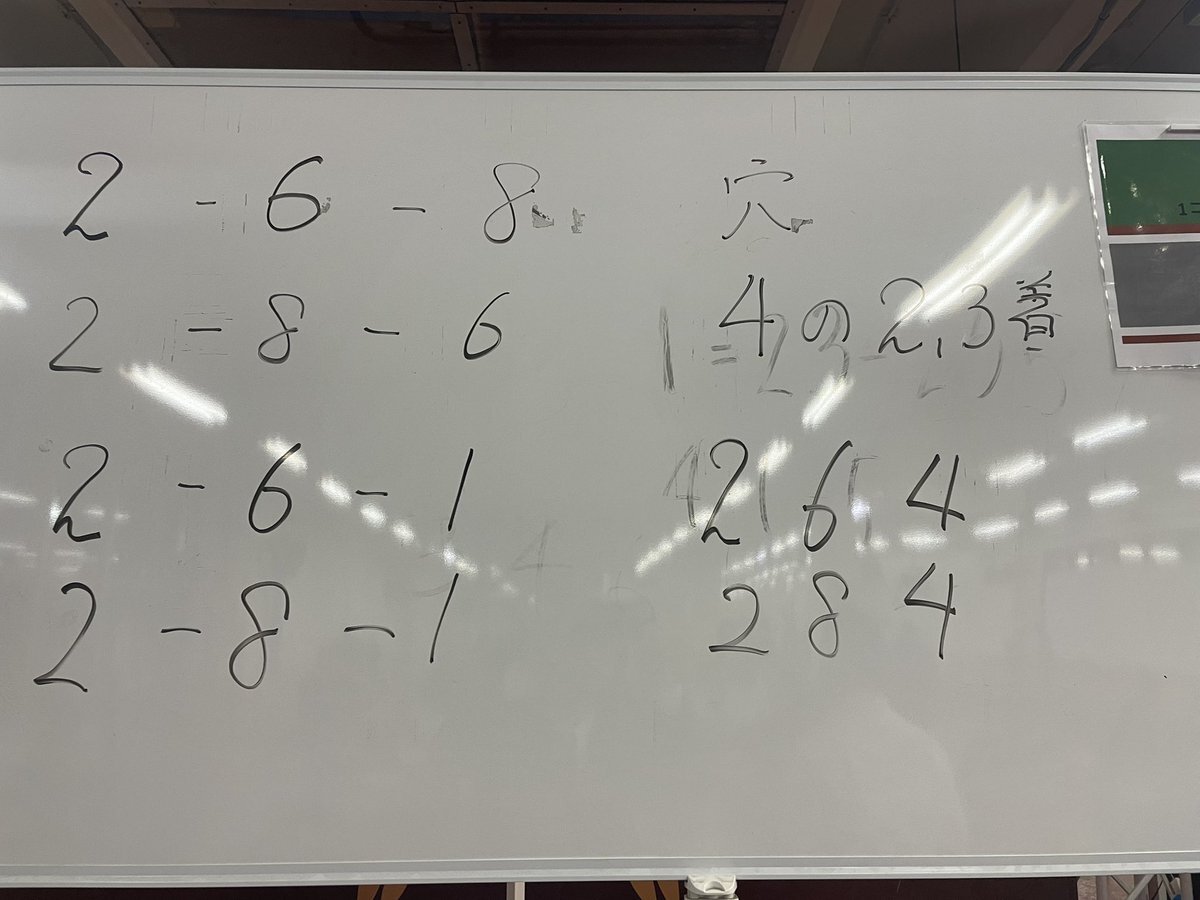 2 - 6 - 8
2 = 8 - 6
2 - 6 - 1
2 - 8 - 1
穴
4の2,3着
2 6 4
2 8 4